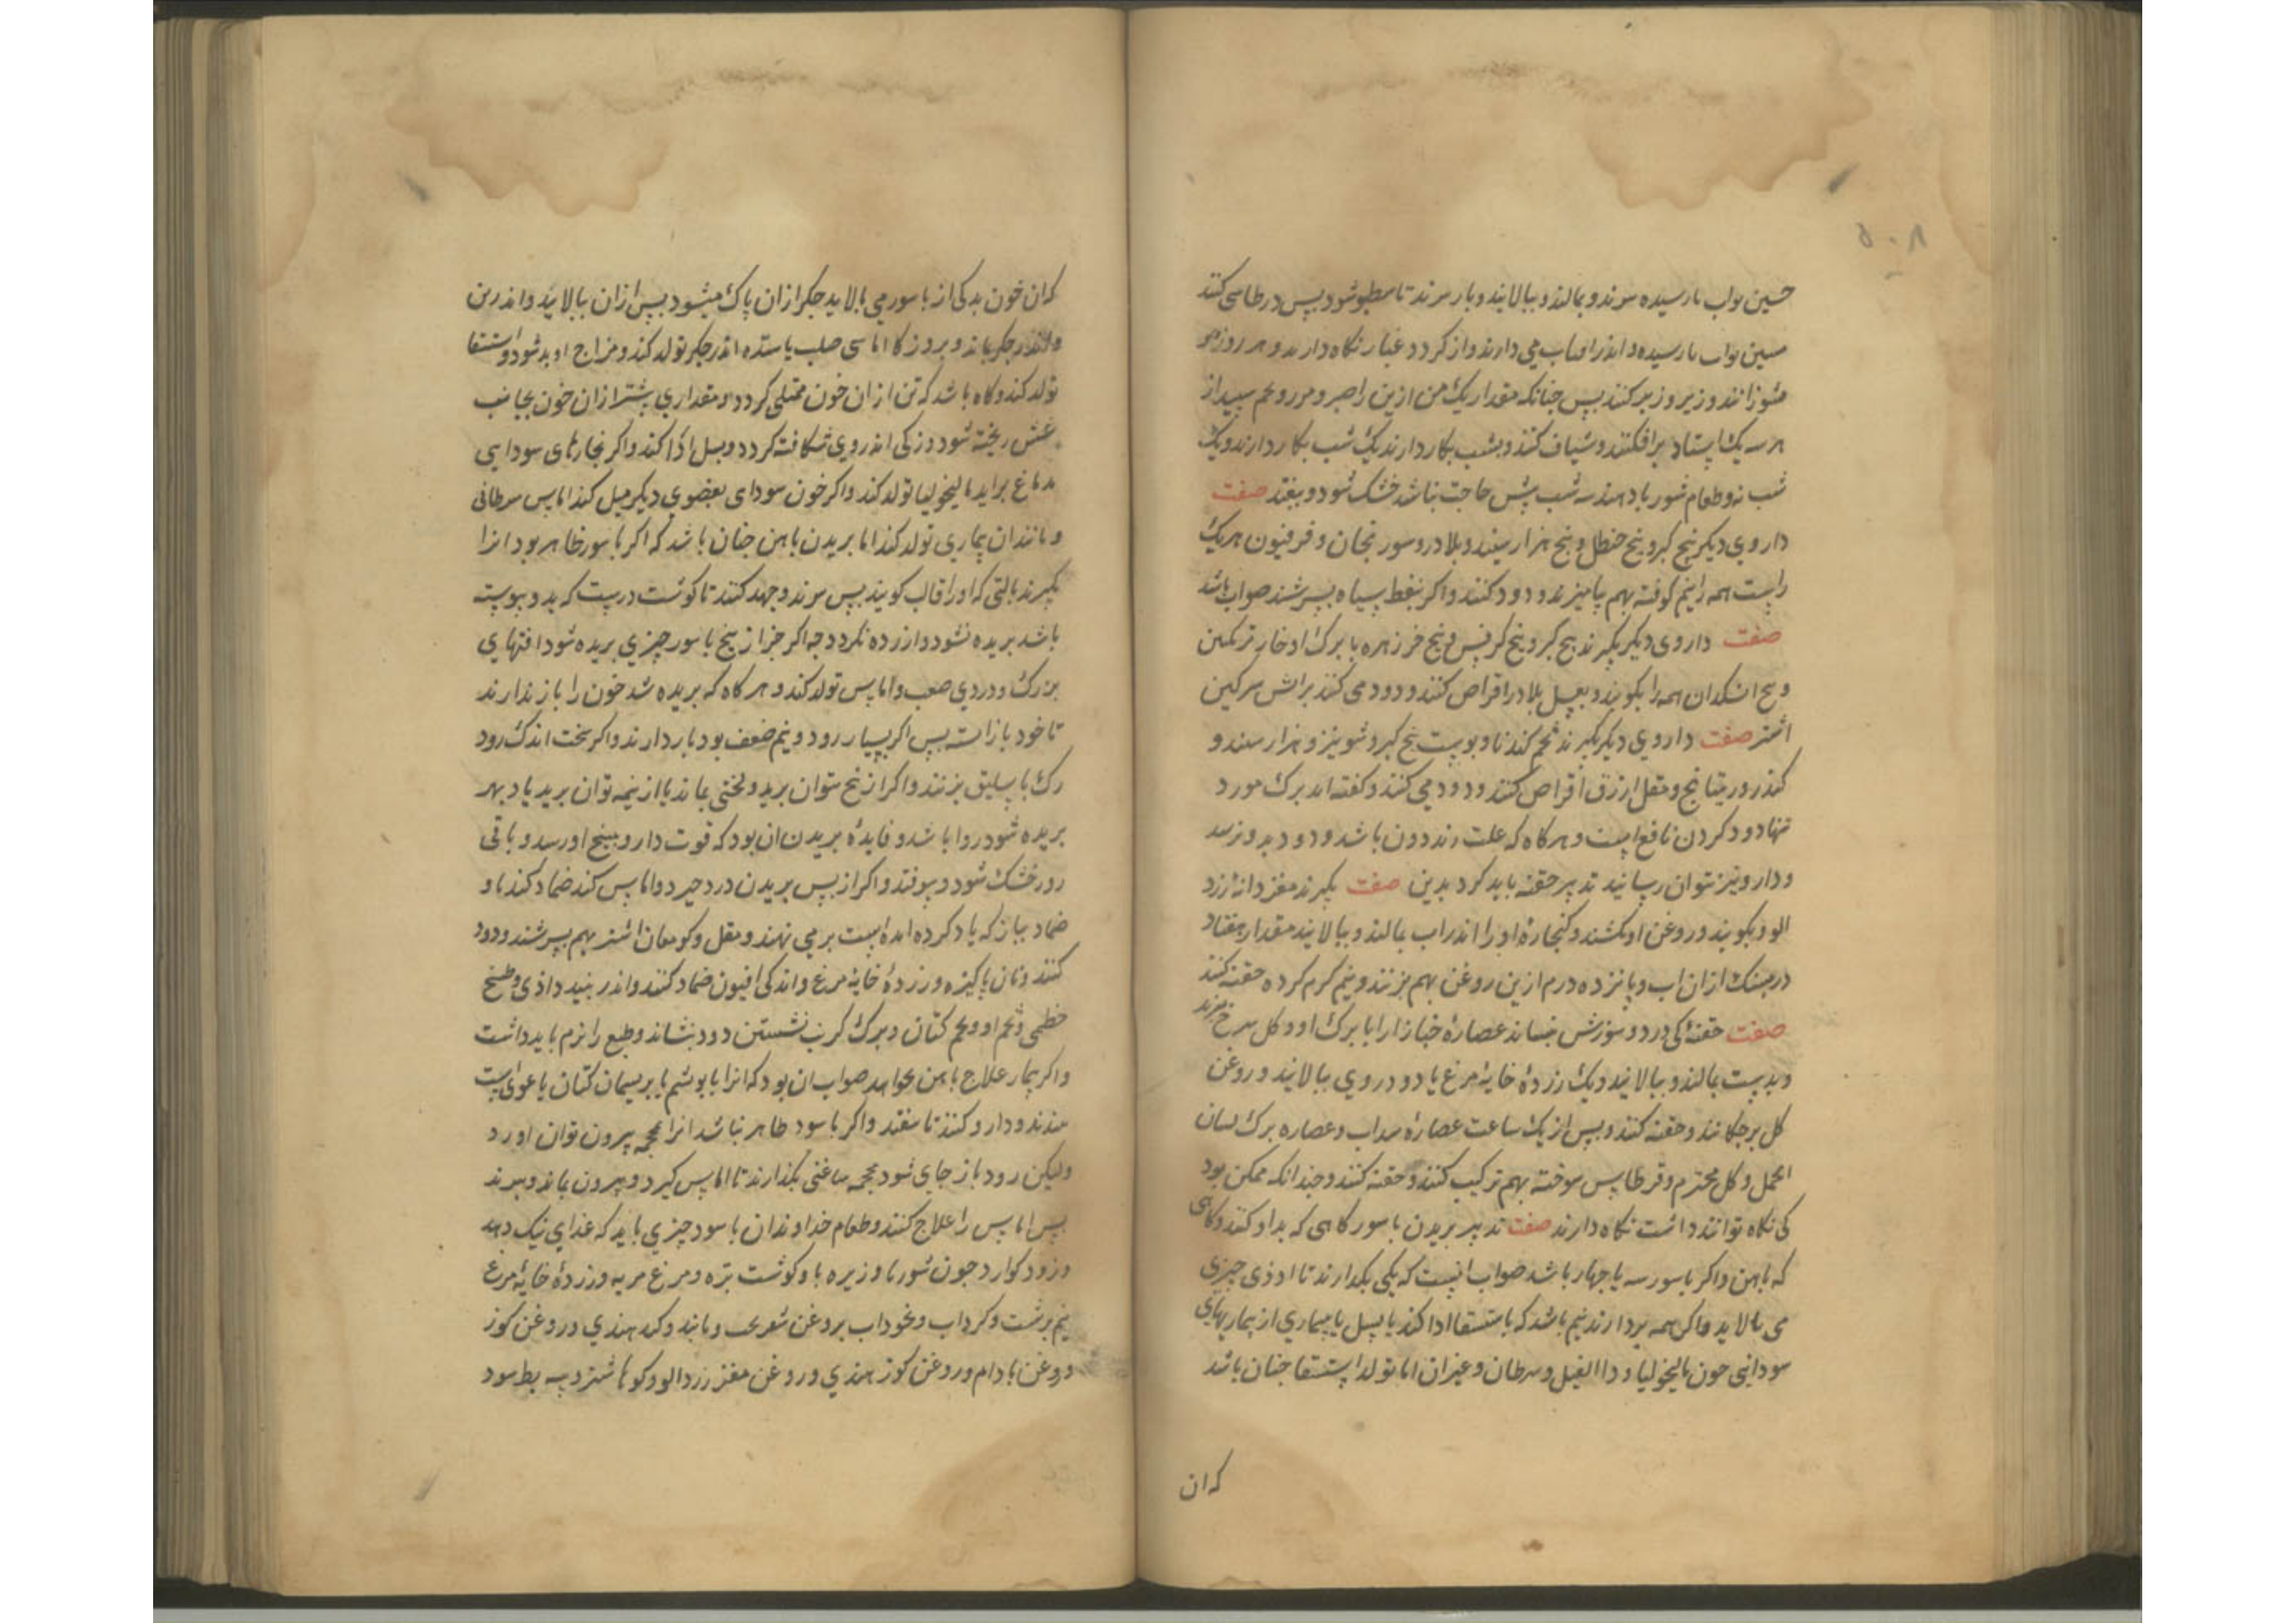 ۵۰۸
بارسیده برند و بمالند و ببالایند و باز برند تا سطبر شود پس در طاسی کنند
مسین و اندر افتاب می دارند و از کرد و غبار نکاه دارند و هر روز
و زیر و زبر کنند پس جنانکه مقدار یک من ازین را صبر و مر و شحم سپید از
هر یک استاد برافکنند و شیاف کنند و بشب بکار دارند یک شب بکار دارند و یک
شب نه و طعام شوربا دهند سه شب بیش حاجت نباشد خشک شود و بیفتد صفت
داروی دیکر بیخ کبر و بیخ حنظل و بیخ هزار سپند و بلادر و سورنجان و فرفیون هر یک
راست همه را نیم کوفته بهم بیامیزند و دود کنند و اکر بنفط سیاه بسرشند صواب باشد
صفت داروی دیکر بکیرند بیخ کبر و بیخ کرفس و بیخ خرزهره با برک او خار ترنکبین
و بیخ اشکدان همه را بکوبند و بعسل بلادر اقراص کنند و دود می کنند براتش سرکین
اشتر صفت داروی دیکر بکیرند تخم کندنا و پوست بیخ کبر و شونیز و هزار سپند و
کندر و ریتیانج و مقل ازرق اقراص کنند و دود می کنند و کفته اند برک مورد
تنها دود کردن نافع است و هرکاه که علت زندرون باشد و دود بدو نرسد
و دارو نیز نتوان رسانید تدبیر حقنه باید کرد بدین صفت بکیرند مغز دانه زرد
الو و بکوبند و روغن او بکشند و کنجاره او را اندر اب بمالند و ببالایند مقدار هفتاد
درمسنک ازان اب و پانزده درم ازین روغن بهم بزنند و نیم کرم کرده حقنه کنند
صفت حقنه کی درد و سوزش بنشاند عصاره خبازی را با برک او و کل سرخ بپزند
و بدست بمالند و ببالایند و یک زرده خایه مرغ یا دو در وی ببالایند و روغن
کل برچکانند و حقنه کنند و پس از یک ساعت عصاره سداب و عصاره برک لسان
الحمل و کل مختوم و قرطاس سوخته بهم ترکیب کنند و حقنه کنند و جندانکه ممکن بود
کی نکاه توانند داشت نکاه دارند صفت تدبیر بریدن باسور کاهی که بدارو کنند و کاهی
که باهن و اکر باسور سه یا جهار باشد صواب انست که یکی بکذارند تا از وی چیزی
می بالاید و اکر همه بردارند بیم باشد که باستسقا ادا کند یا بسل یا بیماری از بیماریهای
سودایی جون مالیخولیا و داالفیل و سرطان و غیر ان اما تولد استسقا جنان باشد
که ان
که ان خون بد کی از باسور می بالاید جکر از ان پاک میشود پس از ان ببالاید و اندر تن
و اندر جکر بماند و بروزکار اماسی صلب یا سده اندر جکر تولد کند و مزاج او بد شود و استسقا
تولد کند و کاه باشد که تن از ان خون ممتلی کردد و مقداری بیشتر از ان خون بجانب
شش ریخته شود و رکی اندر وی شکافته کردد و بسل ادا کند و اکر بخارهای سودایی
بدماغ براید مالیخولیا تولد کند و اکر خون سودای بعضوی دیکر میل کند اماس سرطانی
و مانند ان بیماری تولد کند اما بریدن باهن جنان باشد که اکر باسور ظاهر بود انرا
بکیرند بالتی که او را قالب کویند پس برند و جهد کنند تا کوشت درست که بدو پیوسته
باشد بریده نشود و ازرده نکردد چه اکر جز از بیخ باسور چیزی بریده شود افتهای
بزرک و دردی صعب و اماس تولد کند و هرکاه که بریده شد خون را باز ندارند
تا خود باز استد پس اکر بسیار رود و بیم ضعف بود باز دارند و اکر سخت اندک رود
رک باسلیق بزنند و اکر از بیخ نتوان برید و لختی بماند یا از نیمه توان برید یا دو بهر
بریده شود روا باشد و فایده بریدن ان بود که قوت دارو ببیخ او رسد و باقی
زود خشک شود و بیوفتد و اکر از پس بریدن درد خیزد و اماس کند ضماد کندنا و
ضماد پیاز که یاد کرده امده است بر می نهند و مقل و کوهان اشتر بهم بسرشند و دود
کنند و نان پاکیزه و زرده خایه مرغ و اندکی افیون ضماد کنند و اندر نبید داذی و طبیخ
خطمی و تخم او و تخم کتان و برک کرنب نشستن درد بنشاند و طبع را نرم باید داشت
و اکر بیمار علاج باهن نخواهد صواب ان بود که انرا با بوشم یا بریسمان کتان یا
ببندند و دارو کنند تا بیفتد و اکر باسور ظاهر نباشد انرا بمحجمه بیرون توان اورد
ولیکن زود باز جای شود محجمه ساعتی بکذارند تا اماس کیرد و بیرون بماند و ببرند
پس اماس را علاج کنند و طعام خداوندان باسور چیزی باید که غذای نیک دهد
و زود کوارد جون شوربا و زیره با و کوشت بره و مرغ فربه و زرده خایه مرغ
نیم برشت و کرداب و نخوداب بروغن و مانند و کند هندی و روغن کوز
و روغن بادام و روغن کوز هندی و روغن مغز زردالو و کوهان اشتر و پیه بط سود